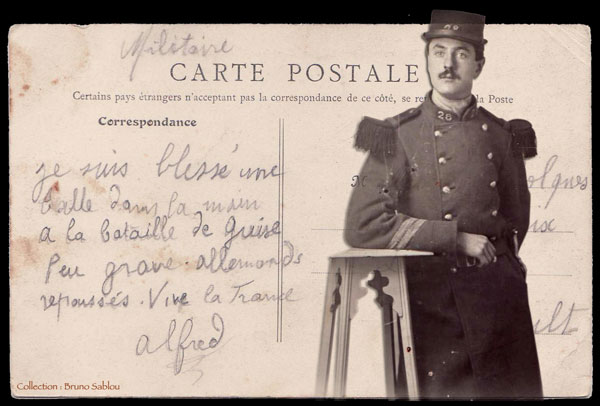 Militaire
CARTE POSTALE
Certains pays étrangers n'acceptant pas la correspondance de ce côté, se la Poste
Correspondance
je suis blessé une
balle dans la main
a la bataille de Guise
Peu grave. allemands
repoussés. Vive la France
alfred
28
Collection : Bruno Sablou